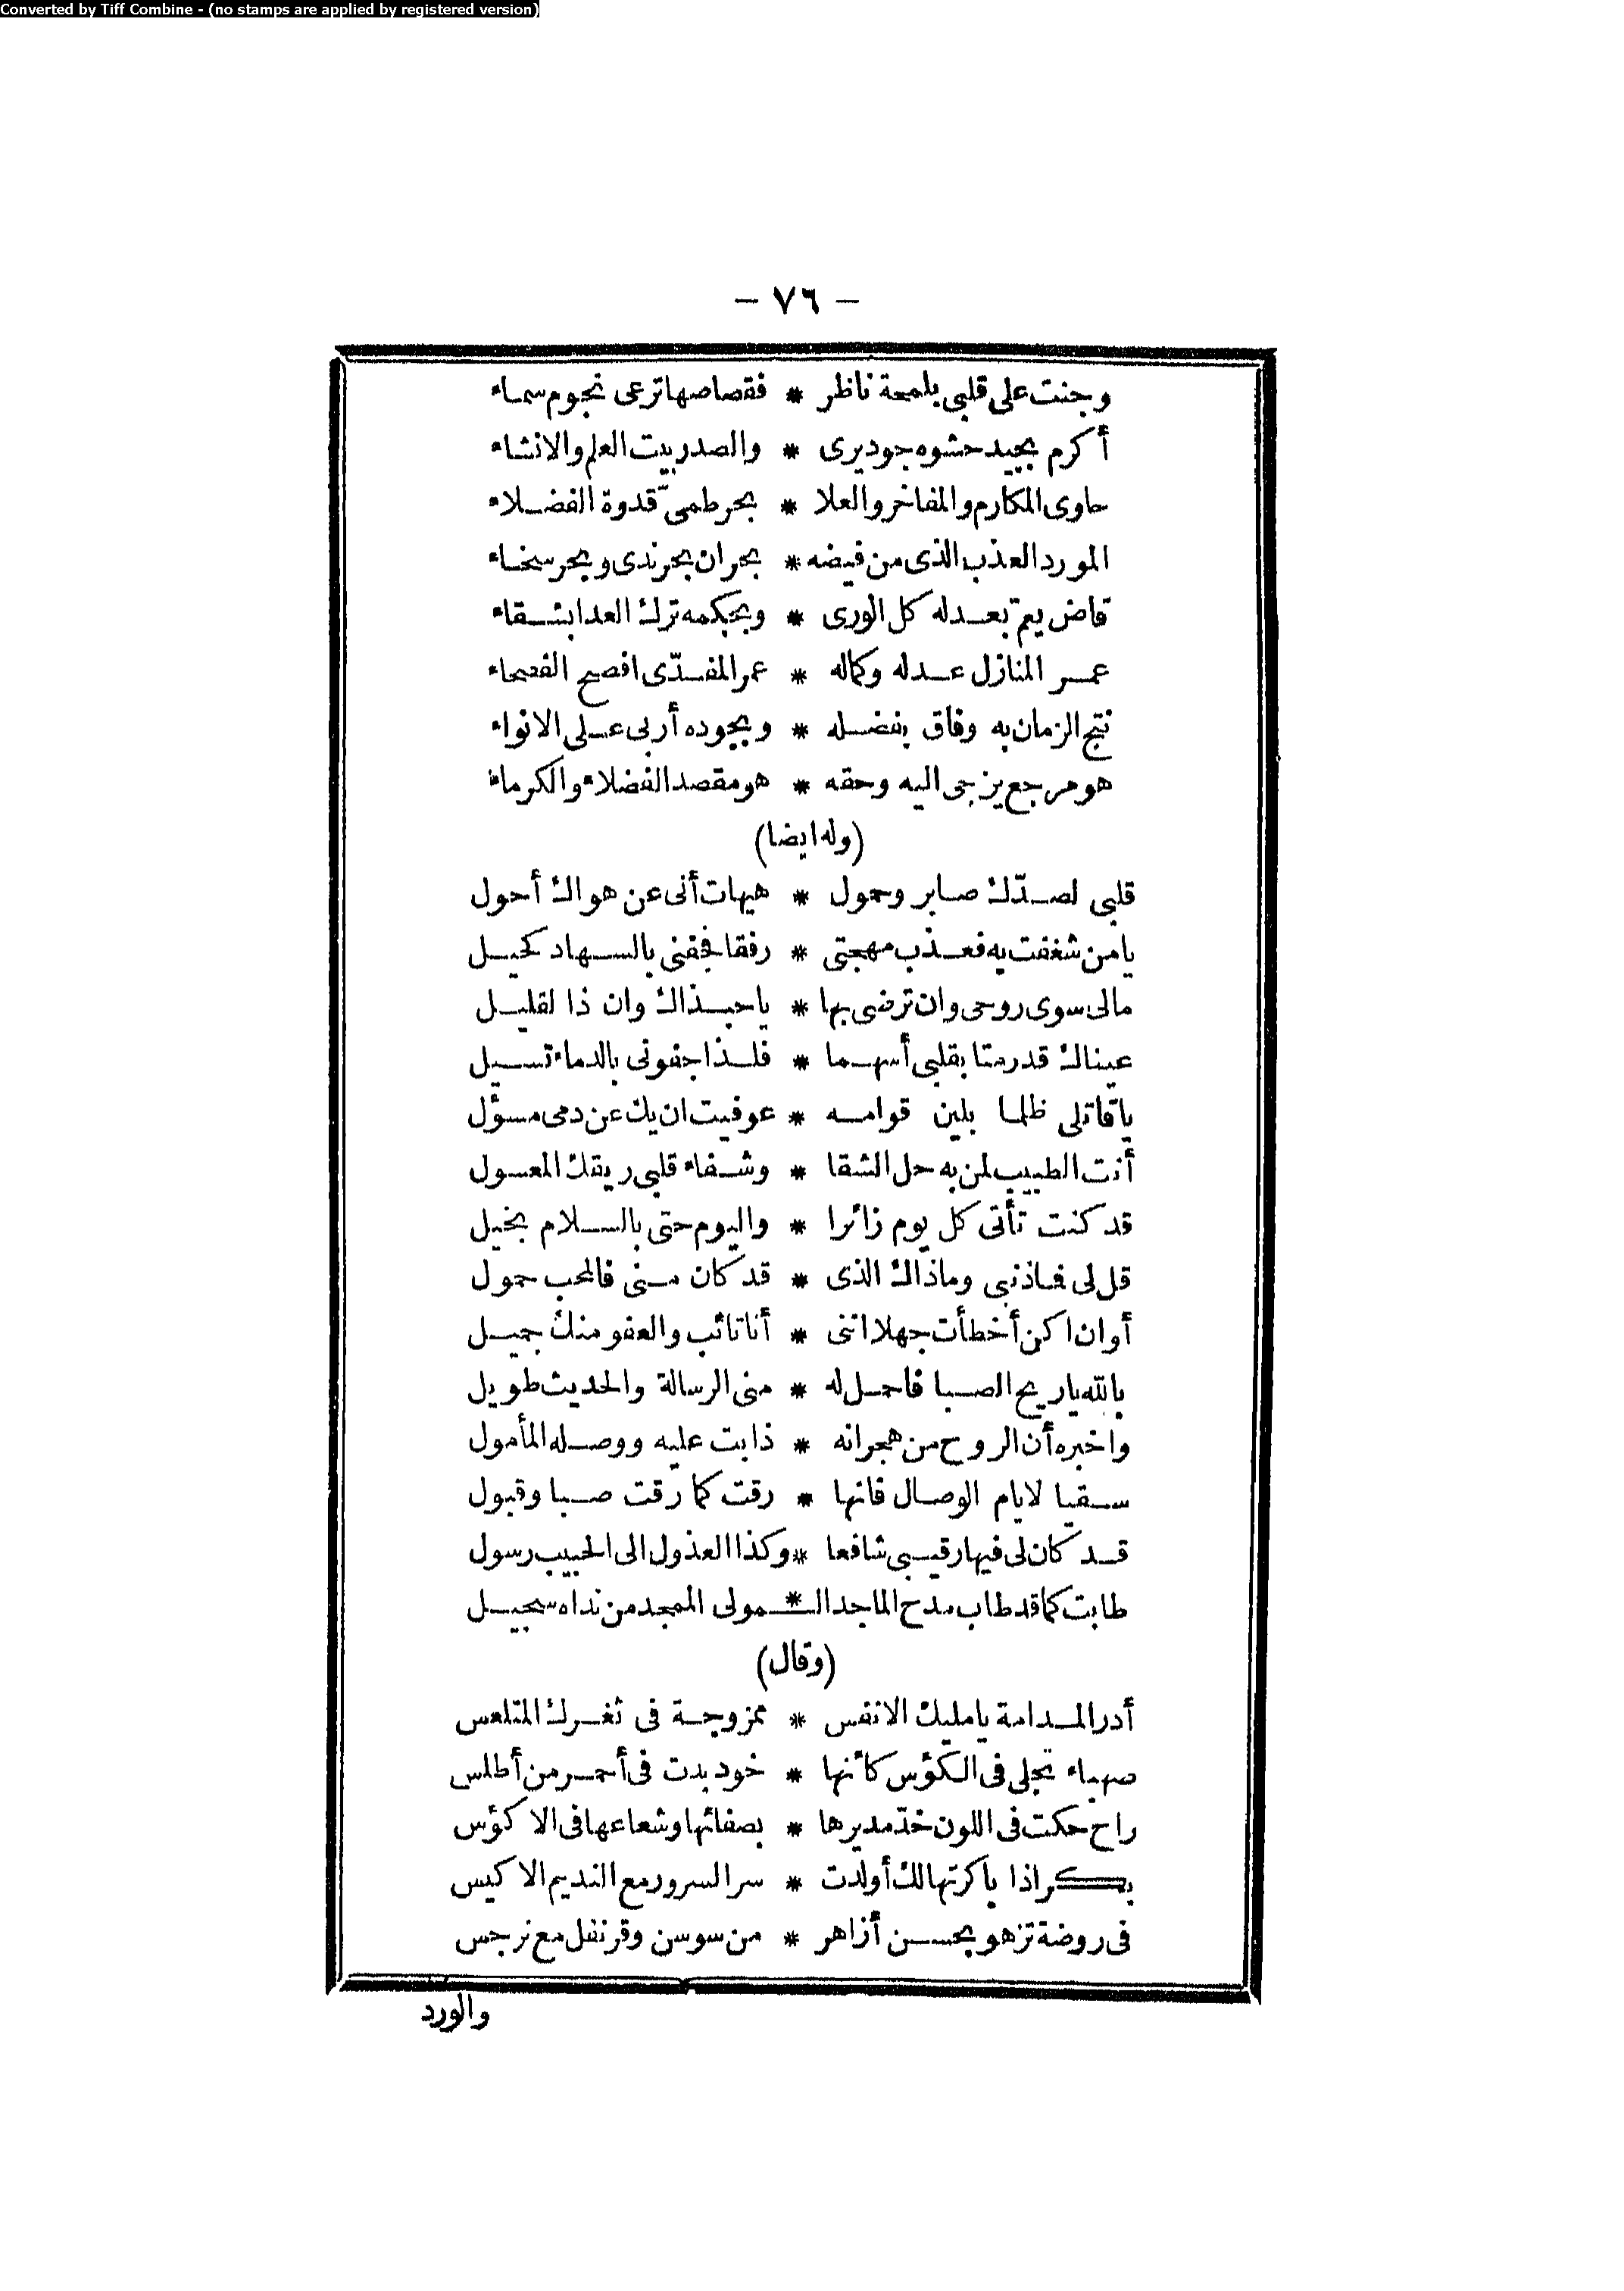 Converted by Tiff Combine - (no stamps are applied by registered version)
- ٧٦ -
وجنت على قلبى بلمحة ناظر * فقصاصها ترعى نجوم سماء
أكرم بجيد حشوه جود يرى * والصدر بيت العلم والانشاء
حاوى المكارم والمفاخر والعلا * بحر طمىّ قدوة الفضلاء
المورد العذب الذى من فيضه * بحران بحر ندى وبحر سخاء
قاض يعمّ بعدله كل الورى * وبحكمه ترك العدا بشقاء
عمر المنازل عدله وكماله * عمر المفدّى افصح الفصحاء
نتج الزمان به وفاق بفضله * وبجوده أربى على الانواء
هو مرجع يزجى اليه وحقه * هو مقصد الفضلاء والكرماء
(وله ايضا)
قلبى لصدّك صابر وحمول * هيهات أنى عن هواك أحول
يا من شغفت به فعذب مهجتى * رفقا فجفنى بالسهاد كحيل
مالى سوى روحى وان ترضى بها * يا حبذاك وان ذا لقليل
عيناك قد رمتا بقلبى أسهما * فلذا جفونى بالدماء تسيل
يا قاتلى ظلما بلين قوامه * عوفيت ان يك عن دمى مسؤل
أنت الطبيب لمن به حل الشقا * وشفاء قلبى ريقك المعسول
قد كنت تأتى كل يوم زائرا * واليوم حتى بالسلام بخيل
قل لى فماذنبى وماذاك الذى * قد كان منى فالمحب حمول
أو ان اكن أخطأت جهلا اننى * أنا تائب والعفو منك جميل
بالله يا ريح الصبا فاحمل له * منى الرسالة والحديث طويل
واخبره أن الروح من هجرانه * ذابت عليه ووصله المأمول
سقيا لايام الوصال فانها * رقت كما رقت صبا وقبول
قد كان لى فيها رقيبى شافعا * وكذا العذول الى الحبيب رسول
طابت كما قد طاب مدح الماجد الـ * ـمولى الممجد من نداه سجيل
(وقال)
أدر المدامة يا مليك الانفس * ممزوجة فى ثغرك المتلعس
صهباء تجلى فى الكؤس كأنها * خود بدت فى أحمر من أطلس
راح حكت فى اللون خدّ مديرها * بصفائها وشعاعها فى الاكؤس
بكر اذا باكرتها لك أولدت * سر السرور مع النديم الاكيس
فى روضة تزهو بحسن أزاهر * من سوسن وقرنفل مع نرجس
والورد